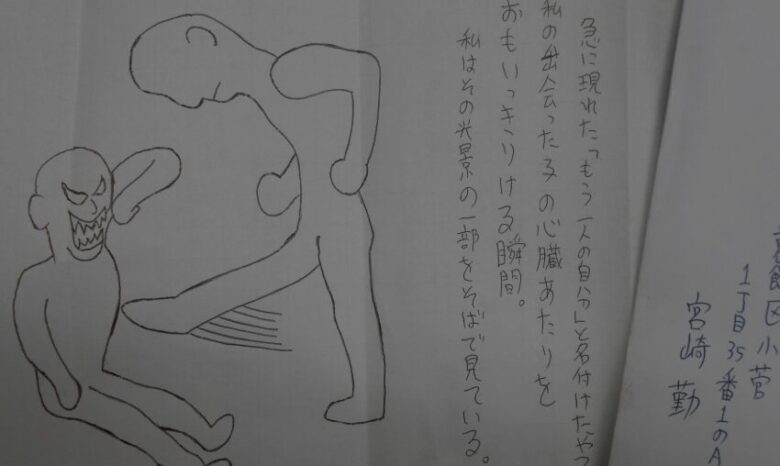 急に現れた「もう一人の自分」と名付けたやつ
私の出会った子の心臓あたりを
おもいっきりける瞬間。
私はその光景の一部をそばで見ている。
区小菅
1丁目35番1のA
宮崎 勤